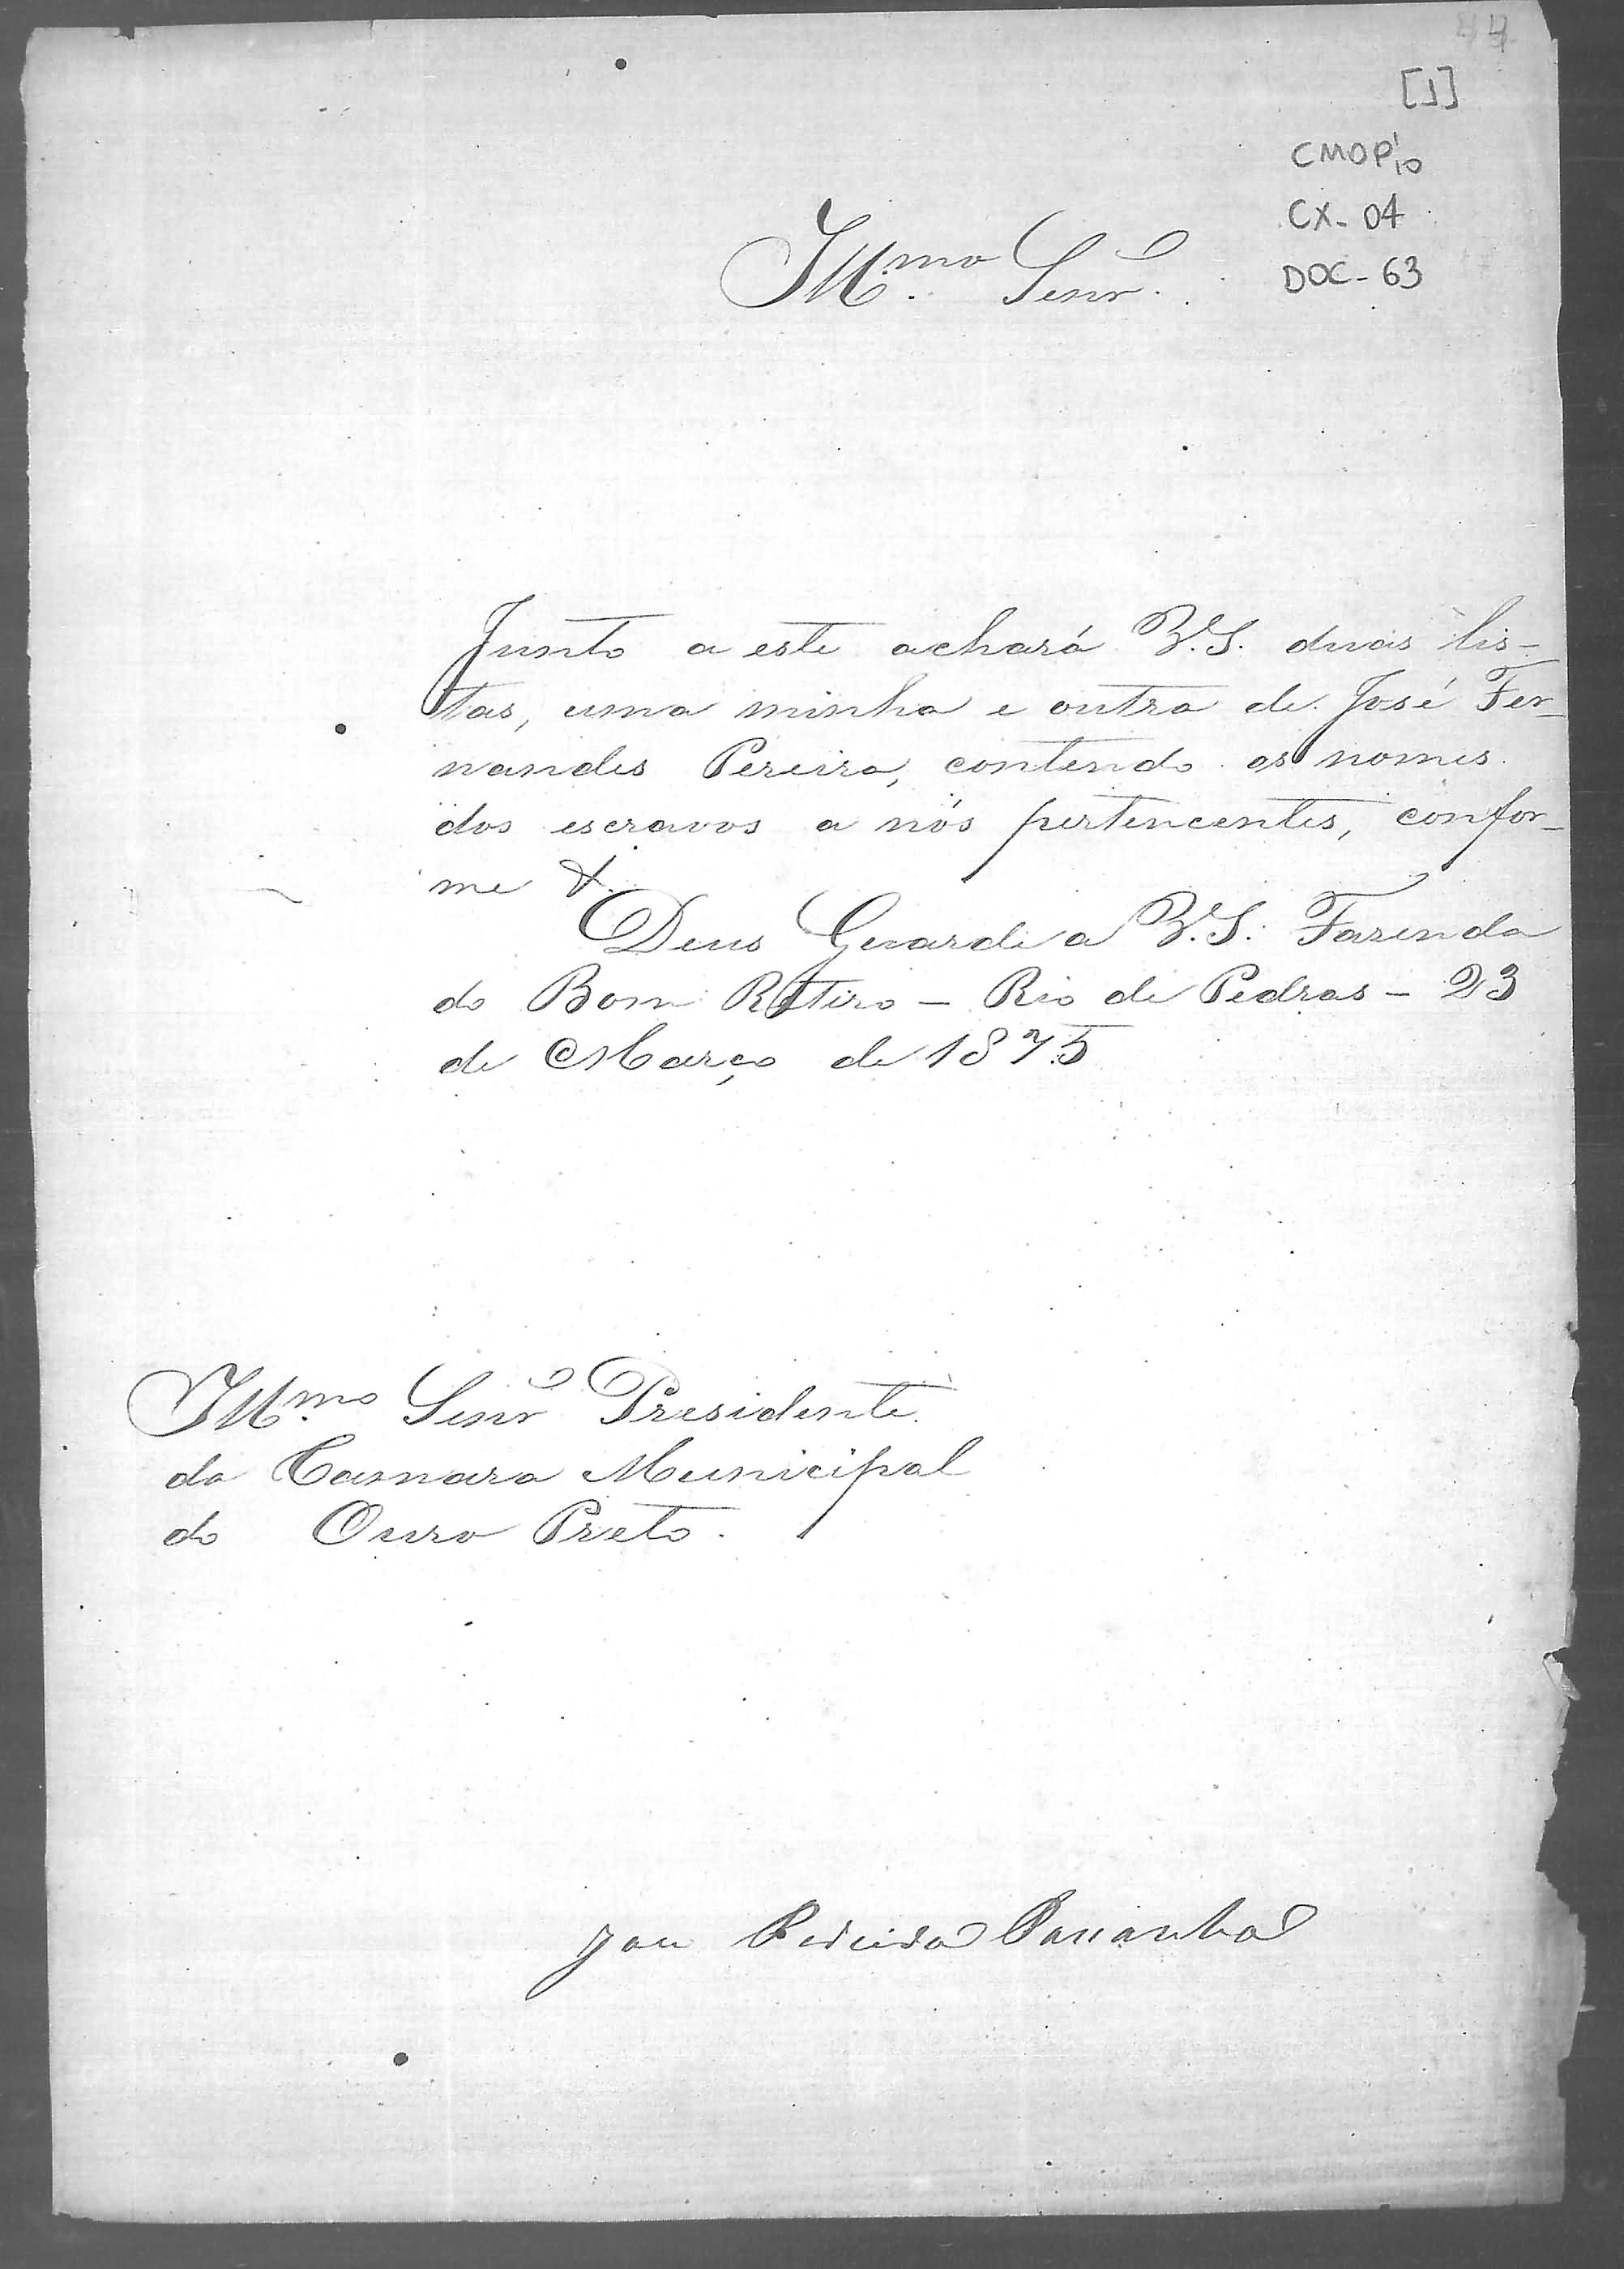 [1]
CMOP 1/10
CX-04
DOC-63
Illmo Senr.
Junto a este achará V.S. duas lis-
tas, uma minha e outra de José Fer-
nandes Pereira, contendo os nomes
dos escravos a nós pertencentes, confor-
me &.
Deus Guarde a V.S. Fazenda
do Bom Retiro - Rio de Pedras - 23
de Março de 1875
Illmo Senr Presidente
da Camara Municipal
do Ouro Preto.
Pereira